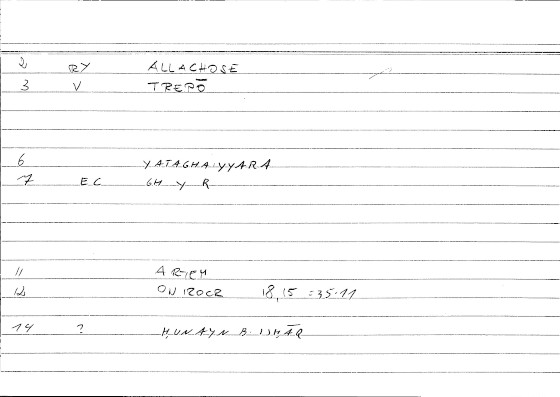 2 RY ALLACHOSE
3 V TREPŌ
6 YATAGHAIYYARA
7 EC GH Y R
11 ARTEM
12 ONIROCR 18,15 =35.11
14 ? ḤUNAYN B. ISḤĀQ